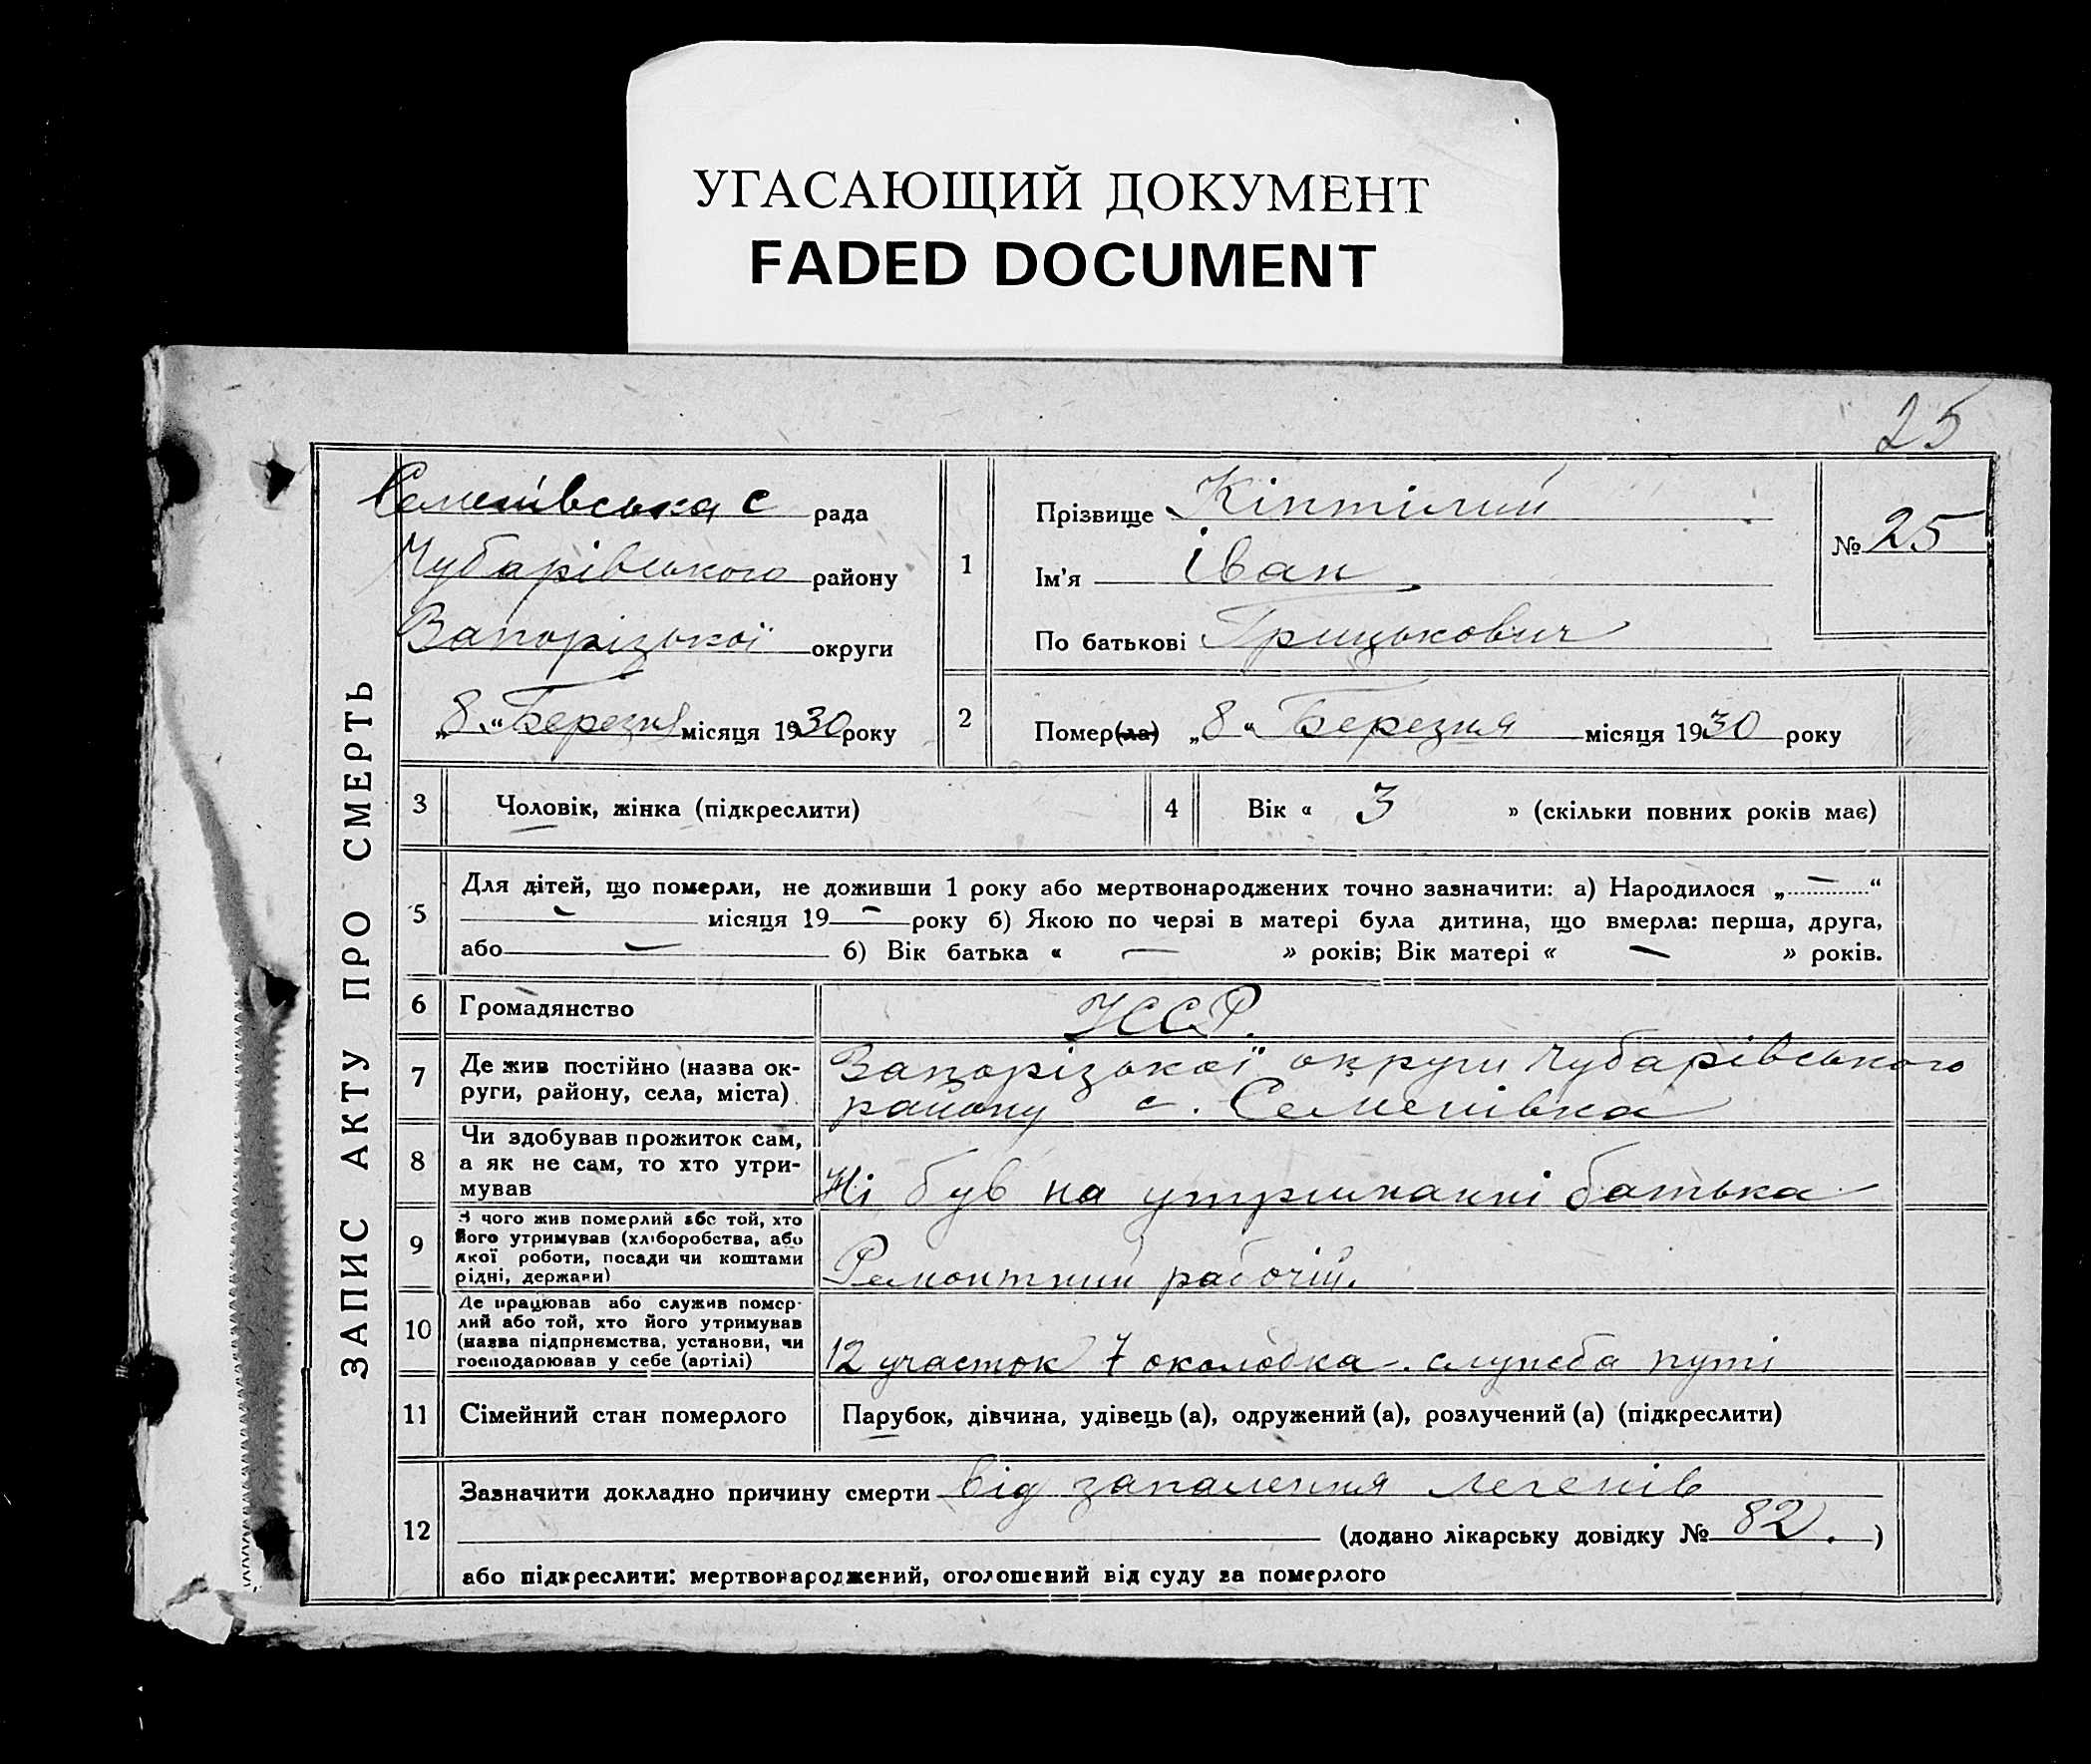 УГАСАЮЩИЙ ДОКУМЕНТ
FADED DOCUMENT
25
ЗАПИС АКТУ ПРО СМЕРТЬ
Семенівська с рада
Чубарівського району
Запорізької округи
„8“ Березня місяця 1930 року
1
Прізвище Кіптілий
Ім'я Іван
По батькові Грицькович
№ 25
2 Помер(ла) „8“ Березня місяця 1930 року
3 Чоловік, жінка (підкреслити)
4 Вік « 3 » (скільки повних років має)
5 Для дітей, що померли, не доживши 1 року або мертвонароджених точно зазначити: а) Народилося „—“
— місяця 19— року б) Якою по черзі в матері була дитина, що вмерла: перша, друга,
або — б) Вік батька « — » років; Вік матері « — » років.
6 Громадянство УССР.
7 Де жив постійно (назва ок-
руги, району, села, міста)
Запорізької округи Чубарівського
району с. Семенівка
8 Чи здобував прожиток сам,
а як не сам, то хто утри-
мував
Ні був на утриманні батька
9 З чого жив померлий або той, хто
його утримував (хліборобства, або
якої роботи, посади чи коштами
рідні, держави)
Ремонтний рабочий.
10 Де працював або служив помер-
лий або той, хто його утримував
(назва підприємства, установи, чи
господарював у себе (артілі)
12 участок 7 околодка. служба путі
11 Сімейний стан померлого Парубок, дівчина, удівець (а), одружений (а), розлучений (а) (підкреслити)
12 Зазначити докладно причину смерти від запалення легенів
(додано лікарську довідку № 82. )
або підкреслити: мертвонароджений, оголошений від суду за померлого